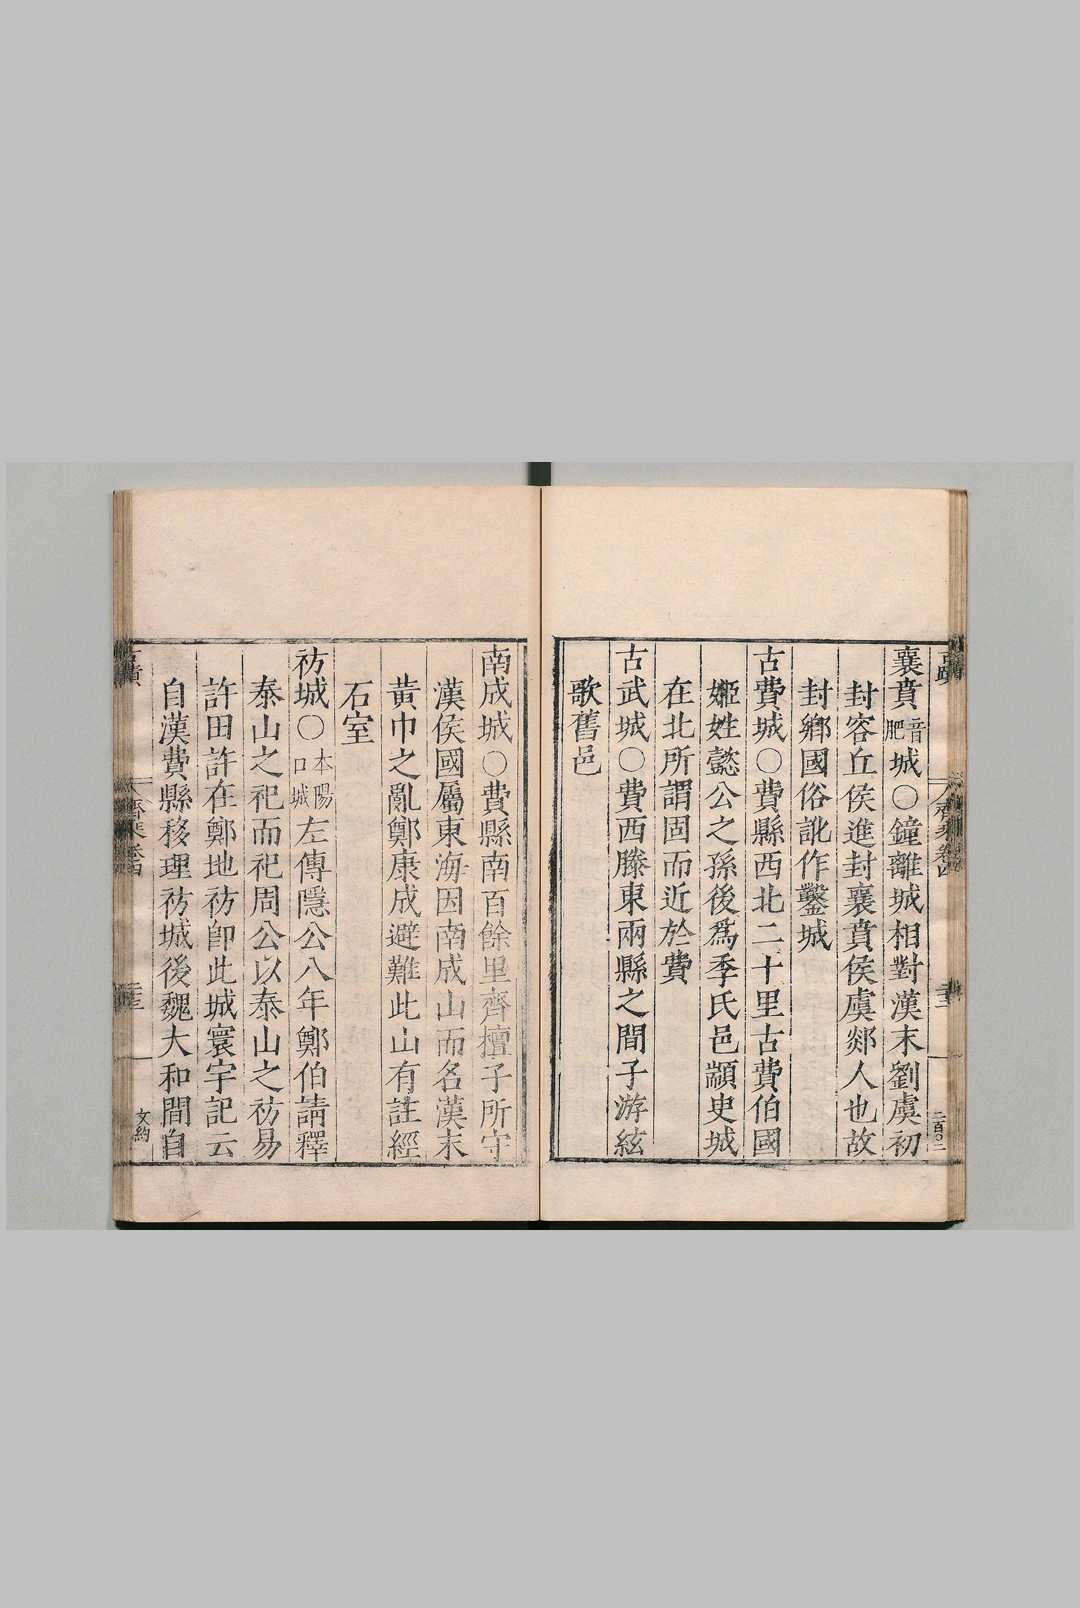 襄賁音肥城○鐘離城相對漢末劉虞初
封容丘侯進封襄賁侯虞郯人也故
封鄉國俗訛作鑿城
古費城○費縣西北二十里古費伯國
姬姓懿公之孫後爲季氏邑顓史城
在北所謂固而近於費
古武城○費西滕東兩縣之間子游絃
歌舊邑
南成城○費縣南百餘里齊檀子所守
漢侯國屬東海因南成山而名漢末
黃巾之亂鄭康成避難此山有註經
石室
祊城○本陽口城左傳隱公八年鄭伯請釋
泰山之祀而祀周公以泰山之祊易
許田許在鄭地祊卽此城寰宇記云
自漢費縣移理祊城後魏大和間自
齊乘卷四
文約